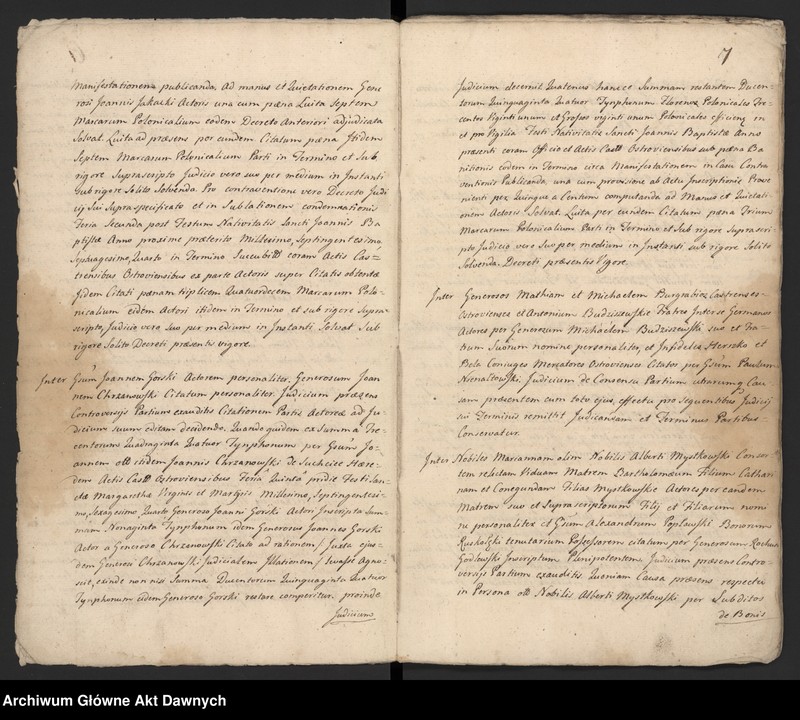 manifestationem publicanda. Ad manus et Quietationem Gene
rosi Joannis Jakacki Actoris una cum pæna Luita Septem
Marcarum Polonicalium eodem Decreto Anteriori adjudicata
Solvat. Luita ad præsens per eundem Citatum pæna Itidem
Septem Marcarum Polonicalium Parti in Termino et sub
rigore Suprascripto Judicio vero suo per medium in Instanti
sub rigore Solito Solvenda. Pro contraventione vero Decreto Judi
cij Sui Supraspecificato et in Sublationem condemnationis
Feria Secunda post Festum Nativitatis Sancti Joannis Ba
ptistæ Anno proxime præterito Millesimo, Septingentesimo,
Septuagesimo, Quarto in Termino coram Actis Cas=
trensibus Ostroviensibus ex parte Actoris super Citatis obtentæ
fidem Citati pænam triplicem Quatuordecem Marcarum Polo-
nicalium eidem Actori itidem in Termino et sub rigore Supra-
scripto, Judicio vero suo per medium in Instanti Solvat Sub
rigore Solito Decreti præsentis vigore.
Inter Gsum Joannem Gorski Actorem personaliter. Generosum Joan
nem Chrzanowski Citatum personaliter. Judicium præsens
Controversijs Partium exauditis Citationem Partis Actoreæ ad Ju-
dicium suum editam decidendo. Quando quidem ex Summa Tre-
centorum Quadraginta Quatuor Tynphonum per Gsum Jo-
annem olim itidem Joannis Chrzanowski de Suchcice Hære-
dem Actis Castr Ostroviensibus Feria Quinta pridie Festi San-
ctæ Margarethæ Virginis et Martyris Millesimo, Septingentesi-
mo, Sexagesimo, Quarto Generoso Joanni Gorski Actori Inscripta Sum-
mam Nonaginta Tynphonum idem Generosus Joannes Gorski
Actor a Generoso Chrzanowski Citato ad rationem / Juxta ejus=
dem Generosi Chrzanowski Judicialem Illationem / levasse Agno-
vit, exinde non nisi Summa Ducentorum Quinquaginta Quatuor
Tynphonum eidem Generoso Gorski restare comperitur proinde
Judicium
7
Judicium decernit Quatenus hancce Summam restantem Ducen-
torum Quinquaginta Quatuor Tynphonum Florenos Polonicales Tre-
centos Viginti unum et Grossos viginti unum Polonicales efficien in
et pro Vigilia Festi Nativitatis Sancti Joannis Baptistæ Anno
præsenti coram Officio et Actis Castr Ostroviensibus sub pæna Ba
nitionis eodem in Termino circa Manifestationem in Casu Contra
ventionis Publicanda, una cum provisione ab Actu Inscriptionis Prove
nienti per Quinque a Centum computanda ad Manus et Quietati-
onem Actoris Solvat. Luita per eundem Citatum pæna Trium
Marcarum Polonicalium Parti in Termino et Sub rigore Suprascri-
pto Judicio vero Suo per medium in Instanti sub rigore Solito
Solvenda. Decreti præsentis Vigore.
Inter Generosos Mathiam et Michaelem Burgrabios Castrenses-
Ostrovienses et Antonium Budziszewskie Fratres Inter se Germanos
Actores per Generosum Michaelem Budziszewski suo et Fra-
trum Suorum nomine personaliter, et Infideles Herszko et
Bela Coniuges Mercatores Ostrovienses Citatos per Gsum Paulum
Nienałtowski. Judicium de Consensu Partium utrarumq Cau
sam præsentem cum toto ejus, effectu pro Sequentibus Judicij
sui Terminis remittit Judicandam et Terminus Partibus-
Conservatur.
Inter Nobiles Mariannam olim Nobilis Alberti Mystkowski Consor-
tem relictam Viduam Matrem Bartholomæum Filium Cathari
nam et Conegundam Filias Mystkowskie Actores per eandem
Matrem suo et Suprascriptorum Filij et Filiarum nomi
nu personaliter et Gsum Alexandrum Popławski Bonorum
tenutarium Possessorem citatum per Generosum Rochum
Godlewski Inscriptum Plenipotentem. Judicium præsens Contro-
versijs Partium exauditis. Quoniam Causa præsens respectu
in Persona olim Nobilis Alberti Mystkowski per Subditos
de Bonis
Archiwum Główne Akt Dawnych